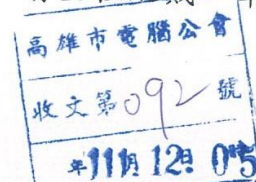 高雄市電腦公會
收文第092號
年11月12日 05